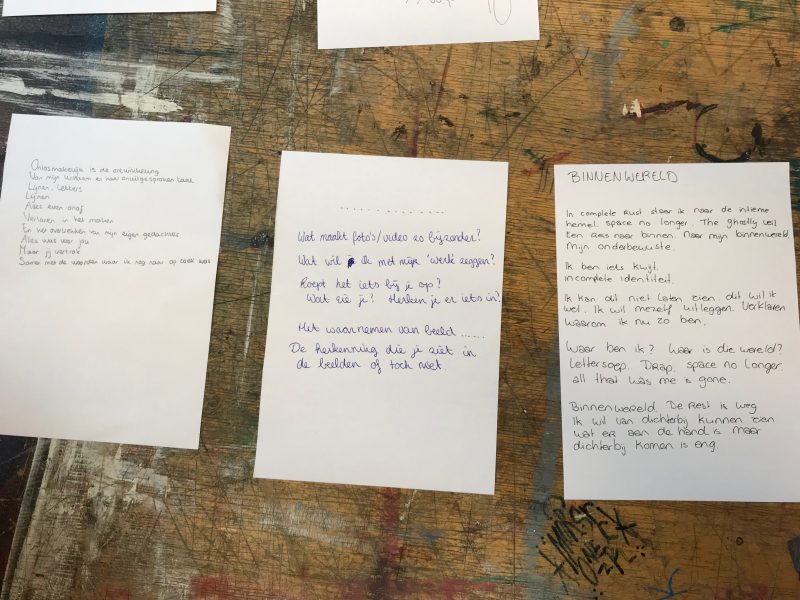 Onlosmakelijk is de ontwikkeling
Van mijn lichaam en haar onuitgesproken taal
Lijnen, Letters
Lijnen
Alles even onaf
Verloren in het maken
En het overtrekken van mijn eigen gedachtes
Alles was voor jou
Maar jij vertrok
Samen met de woorden waar ik nog naar op zoek was
. . . . . . . . . . . . . .
Wat maakt foto's/video zo bijzonder?
Wat wil ik met mijn 'werk' zeggen?
Roept het iets bij je op?
Wat zie je? Herken je er iets in?
Het waarnemen van beeld ......
De herkenning die je ziet in
de beelden of toch niet.
BINNENWERELD
In complete Rust staar ik naar de intieme
hemel. space no longer. The ghostly veil
Een reis naar binnen. Naar mijn binnenwereld
Mijn onderbewuste.
Ik ben iets kwijt.
incomplete identiteit.
Ik kan dit niet laten zien. dit wil ik
wel. Ik wil mezelf uitleggen. Verklaren
waarom ik nu zo ben.
Waar ben ik? Waar is die wereld?
Lettersoep. Drap. space no longer.
all that was me is gone.
Binnenwereld. De Rest is weg
Ik wil van dichterbij kunnen zien
wat er aan de hand is maar
dichterbij komen is eng.